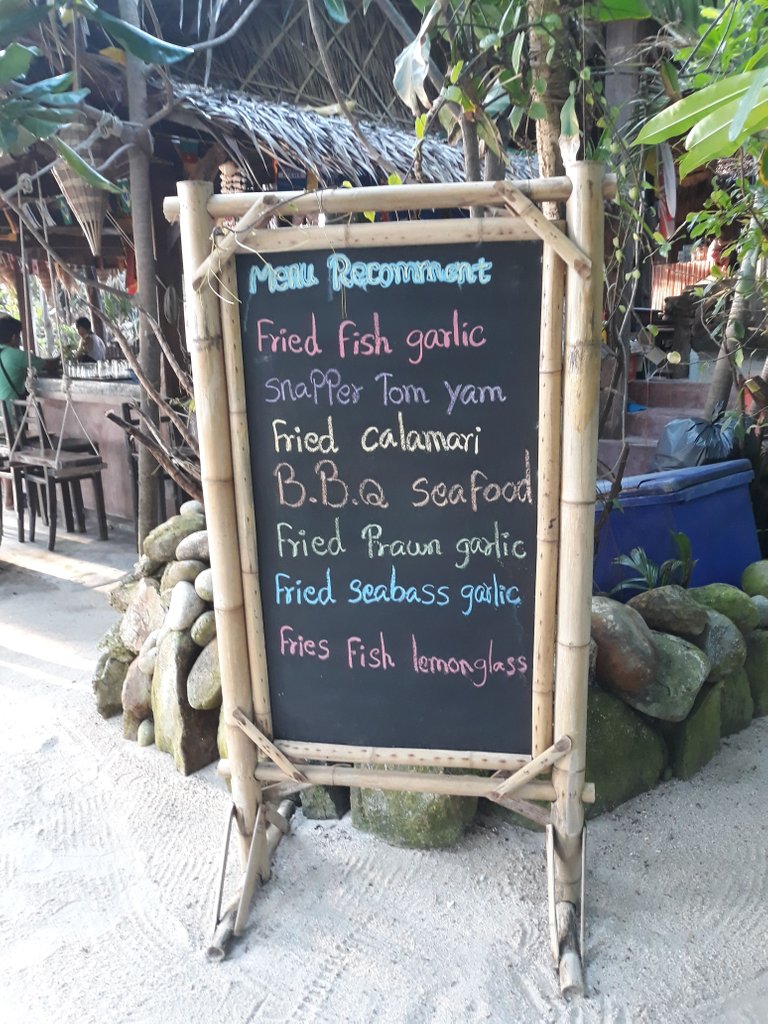 Menu Recomment
Fried fish garlic
snapper Tom yam
Fried calamari
B.B.Q seafood
Fried Prawn garlic
Fried seabass garlic
Fries Fish lemonglass